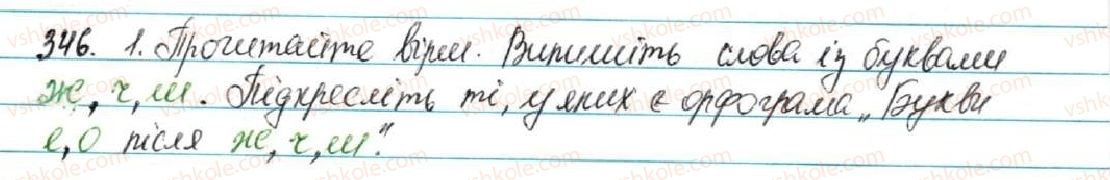 346. 1. Прочитайте вірш. Випишіть слова із буквами
ж, ч, ш. Підкресліть ті, у яких є орфограма „Букви
е, о після ж, ч, ш."